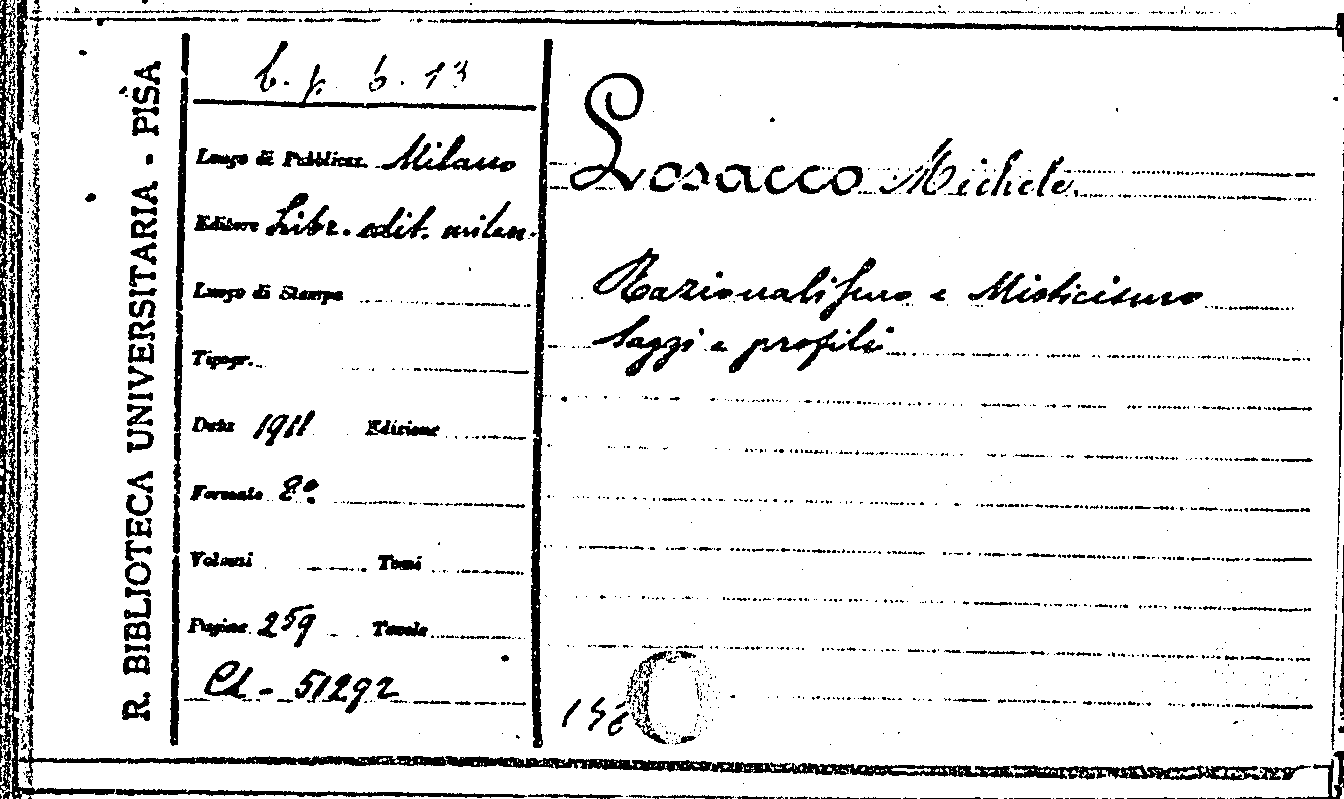 R. BIBLIOTECA UNIVERSITARIA - PISA
b. p. 6. 13
Luogo di Pubblicaz. Milano
Editore Libr. edit. milan.
Luogo di Stampa
Tipogr.
Data 1911 Edizione
Formato 8º
Volumi Tomi
Pagine 259 Tavole
Ch - 51292
Losacco Michele
Razionalismo e Misticismo
Saggi e profili